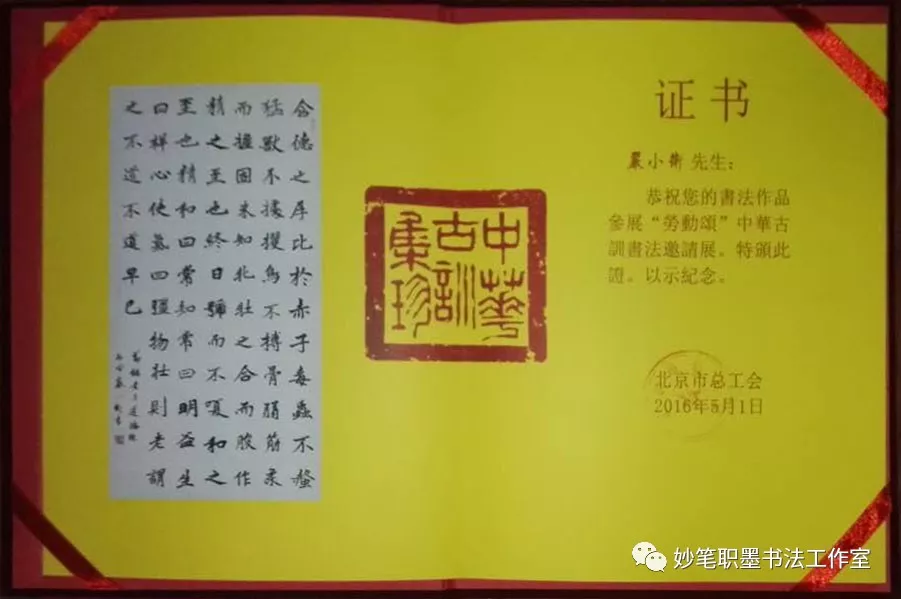 含德之厚比於赤子毒蟲不螫
猛獸不據攫鳥不搏骨弱筋柔
而握固未知牝牡之合而朘作
精之至也終日號而不嗄和之
至也精和曰常知常曰明益生
曰祥心使氣曰彊物壯則老謂
之不道不道早已
中華
古訓
集珍
证书
嚴小衛 先生：
恭祝您的書法作品
參展“勞動頌”中華古
訓書法邀請展。特頒此
證。以示紀念。
北京市总工会
2016年5月1日
妙笔职墨书法工作室